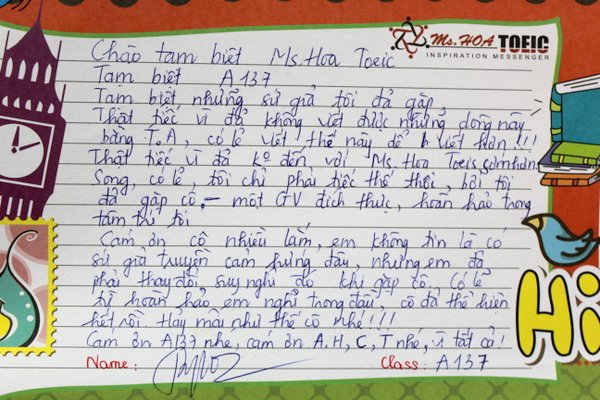 Ms. HOA TOEIC
INSPIRATION MESSENGER
Chào tạm biệt Ms Hoa Toeic
Tạm biệt A137
Tạm biệt những sứ giả tôi đã gặp
Thật tiếc vì đã không viết được những dòng này
bằng T.A, có lẽ viết thế này dễ viết hơn !!!
Thật tiếc vì đã ko đến với Ms. Hoa Toeic sớm hơn
Song, có lẽ, tôi chỉ phải tiếc thế thôi, bởi tôi
đã gặp cô, – một GV đích thực, hoàn hảo trong
tâm trí tôi
Cảm ơn cô nhiều lắm, em không tin là có
sứ giả truyền cảm hứng đâu, nhưng em đã
phải thay đổi suy nghĩ đó khi gặp cô. Có lẽ
sự hoàn hảo em nghĩ trong đầu, cô đã thể hiện
hết rồi. Hãy mãi như thế cô nhé !!!!
Cảm ơn A137 nhé, cảm ơn A, H, C, T nhé, vì tất cả!
Name: Class: A137
Hi